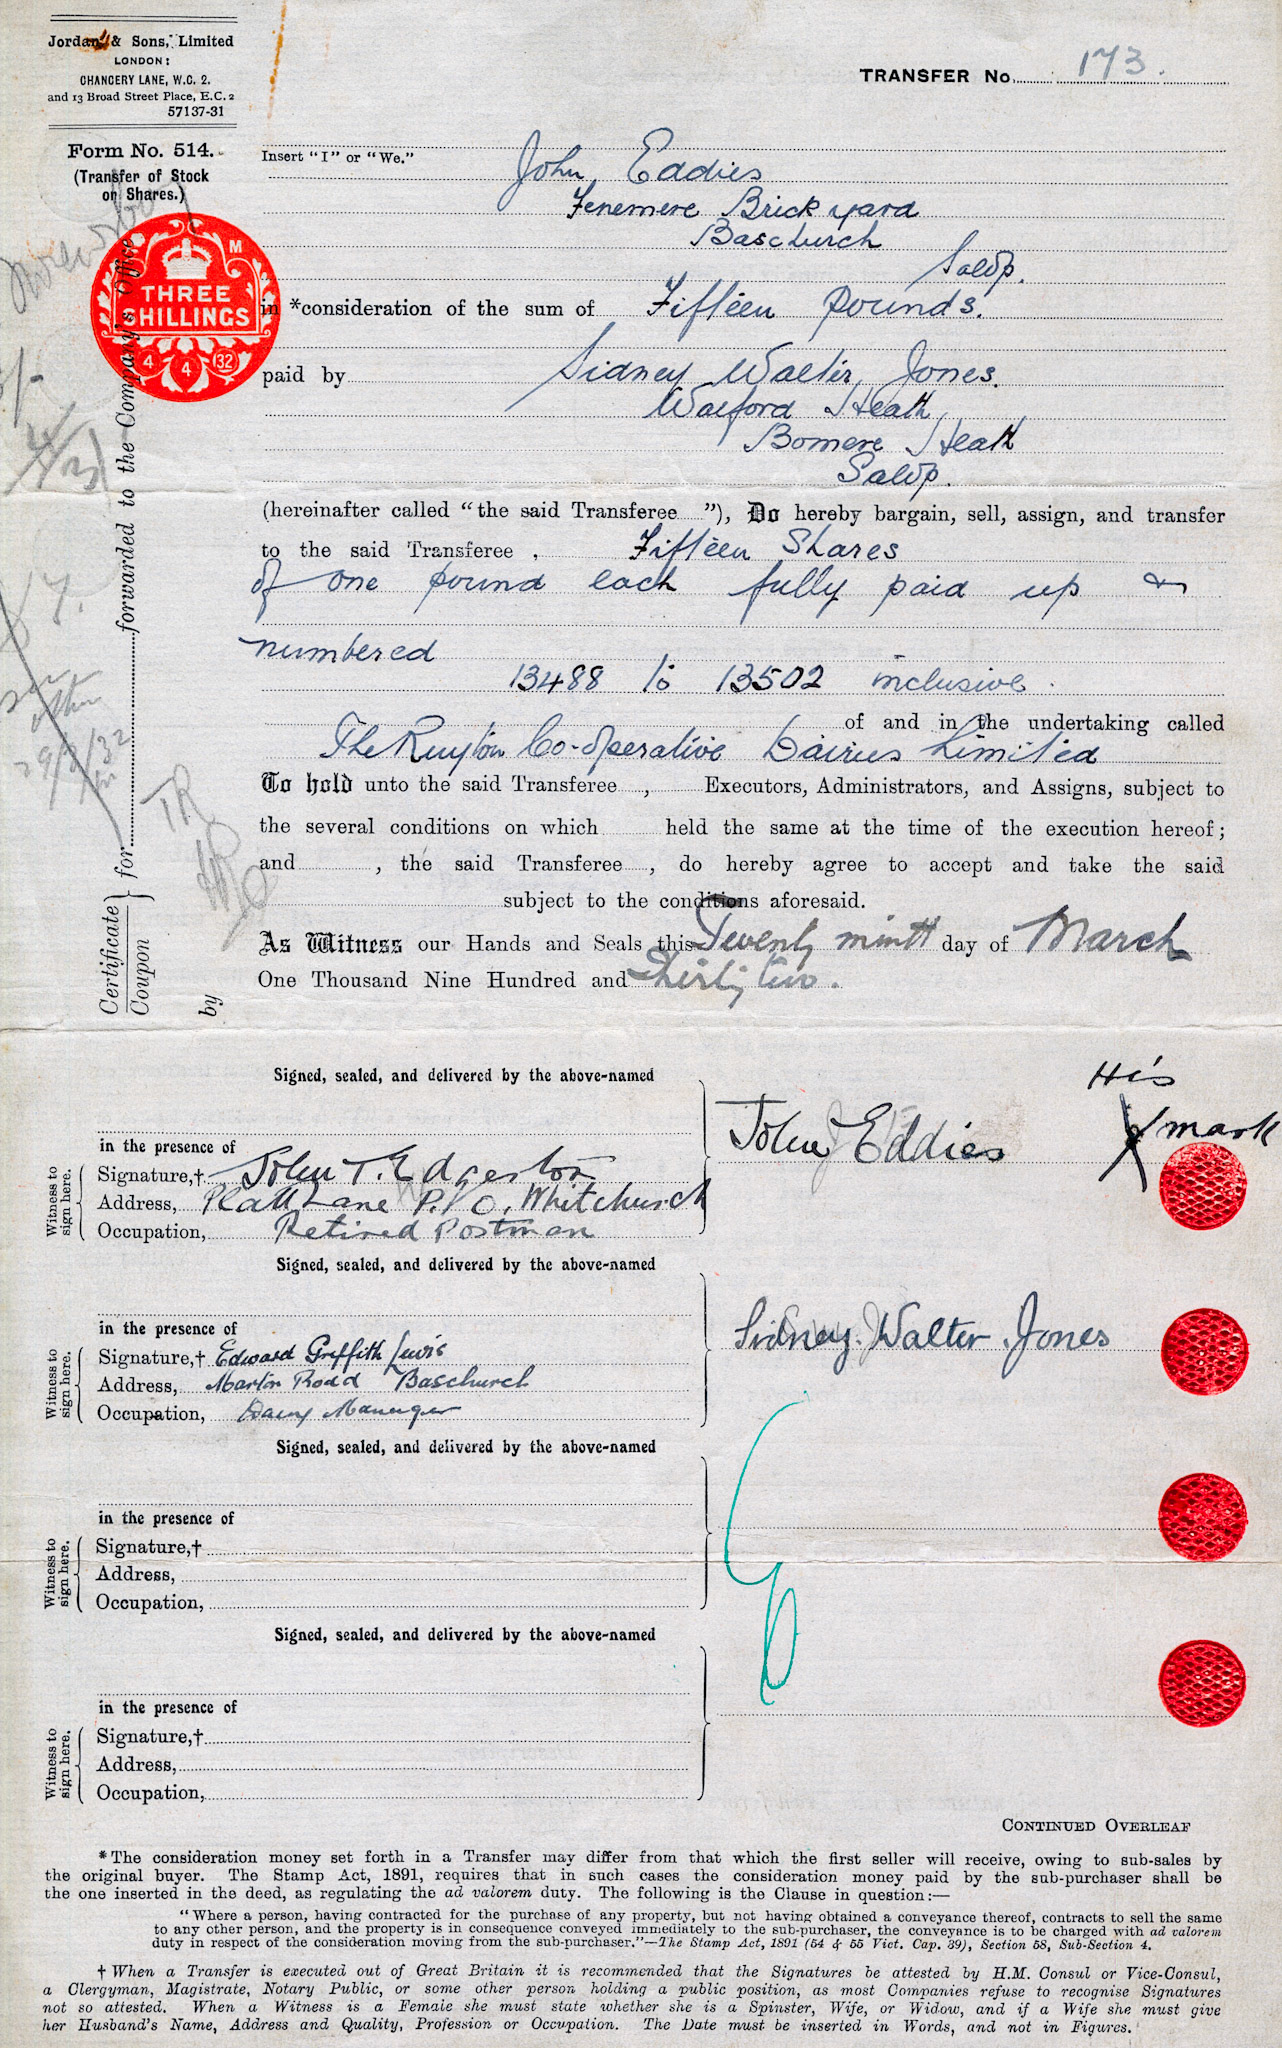 Jordan & Sons, Limited
LONDON:
CHANCERY LANE, W.C. 2.
and 13 Broad Street Place, E.C. 2
57137-31
TRANSFER No. 173.
Form No. 514.
(Transfer of Stock
or Shares.)
Insert "I" or "We."
John Eddies
Fenemere Brick yard
Baschurch
Salop.
THREE
SHILLINGS
M
4 4 32
in *consideration of the sum of Fifteen pounds.
paid by Sidney Walter Jones.
Walford Heath
Bomere Heath
Salop.
(hereinafter called "the said Transferee "), Do hereby bargain, sell, assign, and transfer
to the said Transferee , Fifteen Shares
of one pound each fully paid up &
numbered
13488 to 13502 inclusive.
of and in the undertaking called
The Ruyton Co-operative Dairies Limited
To hold unto the said Transferee , Executors, Administrators, and Assigns, subject to
the several conditions on which held the same at the time of the execution hereof;
and , the said Transferee , do hereby agree to accept and take the said
subject to the conditions aforesaid.
As Witness our Hands and Seals this Twenty ninth day of March
One Thousand Nine Hundred and Thirty two.
Certificate
Coupon
} for forwarded to the Company's Office
by
29/3/32
Signed, sealed, and delivered by the above-named
in the presence of
Witness to
sign here.
Signature,† John T. Edgerton
Address, Platt Lane P.O. Whitchurch
Occupation, Retired Postman
John Eddies
His
X mark
Signed, sealed, and delivered by the above-named
in the presence of
Witness to
sign here.
Signature,† Edward Griffith Lewis
Address, Marton Rodd Baschurch
Occupation, Dairy Manager
Sidney Walter Jones
Signed, sealed, and delivered by the above-named
in the presence of
Witness to
sign here.
Signature,†
Address,
Occupation,
Signed, sealed, and delivered by the above-named
in the presence of
Witness to
sign here.
Signature,†
Address,
Occupation,
CONTINUED OVERLEAF
*The consideration money set forth in a Transfer may differ from that which the first seller will receive, owing to sub-sales by
the original buyer. The Stamp Act, 1891, requires that in such cases the consideration money paid by the sub-purchaser shall be
the one inserted in the deed, as regulating the ad valorem duty. The following is the Clause in question:—
"Where a person, having contracted for the purchase of any property, but not having obtained a conveyance thereof, contracts to sell the same
to any other person, and the property is in consequence conveyed immediately to the sub-purchaser, the conveyance is to be charged with ad valorem
duty in respect of the consideration moving from the sub-purchaser."—The Stamp Act, 1891 (54 & 55 Vict. Cap. 39), Section 58, Sub-Section 4.
† When a Transfer is executed out of Great Britain it is recommended that the Signatures be attested by H.M. Consul or Vice-Consul,
a Clergyman, Magistrate, Notary Public, or some other person holding a public position, as most Companies refuse to recognise Signatures
not so attested. When a Witness is a Female she must state whether she is a Spinster, Wife, or Widow, and if a Wife she must give
her Husband's Name, Address and Quality, Profession or Occupation. The Date must be inserted in Words, and not in Figures.